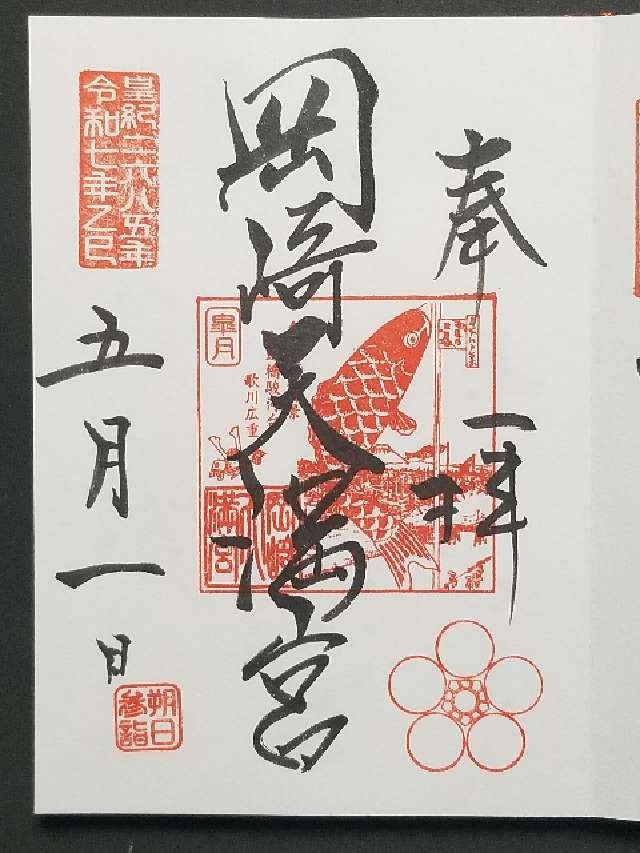 奉拝
岡崎天満宮
皐月
歌川広重
岡崎天満宮
皇紀二六八五年
令和七年乙巳
五月一日
朔日
参詣